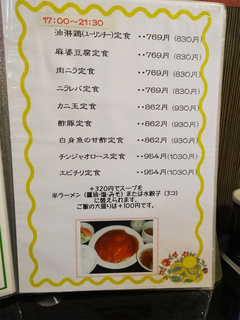 17:00〜21:30
油淋鶏(ユーリンチー)定食 ・・769円(830円)
麻婆豆腐定食 ・・769円(830円)
肉ニラ定食 ・・769円(830円)
ニラレバ定食 ・・769円(830円)
カニ玉定食 ・・862円(930円)
酢豚定食 ・・862円(930円)
白身魚の甘酢定食 ・・862円(930円)
チンジャオロース定食 ・・954円(1030円)
エビチリ定食 ・・954円(1030円)
+320円でスープを
半ラーメン(醤油・塩・みそ)または水餃子(3コ)
に替えられます。
ご飯の大盛りは+100円です。